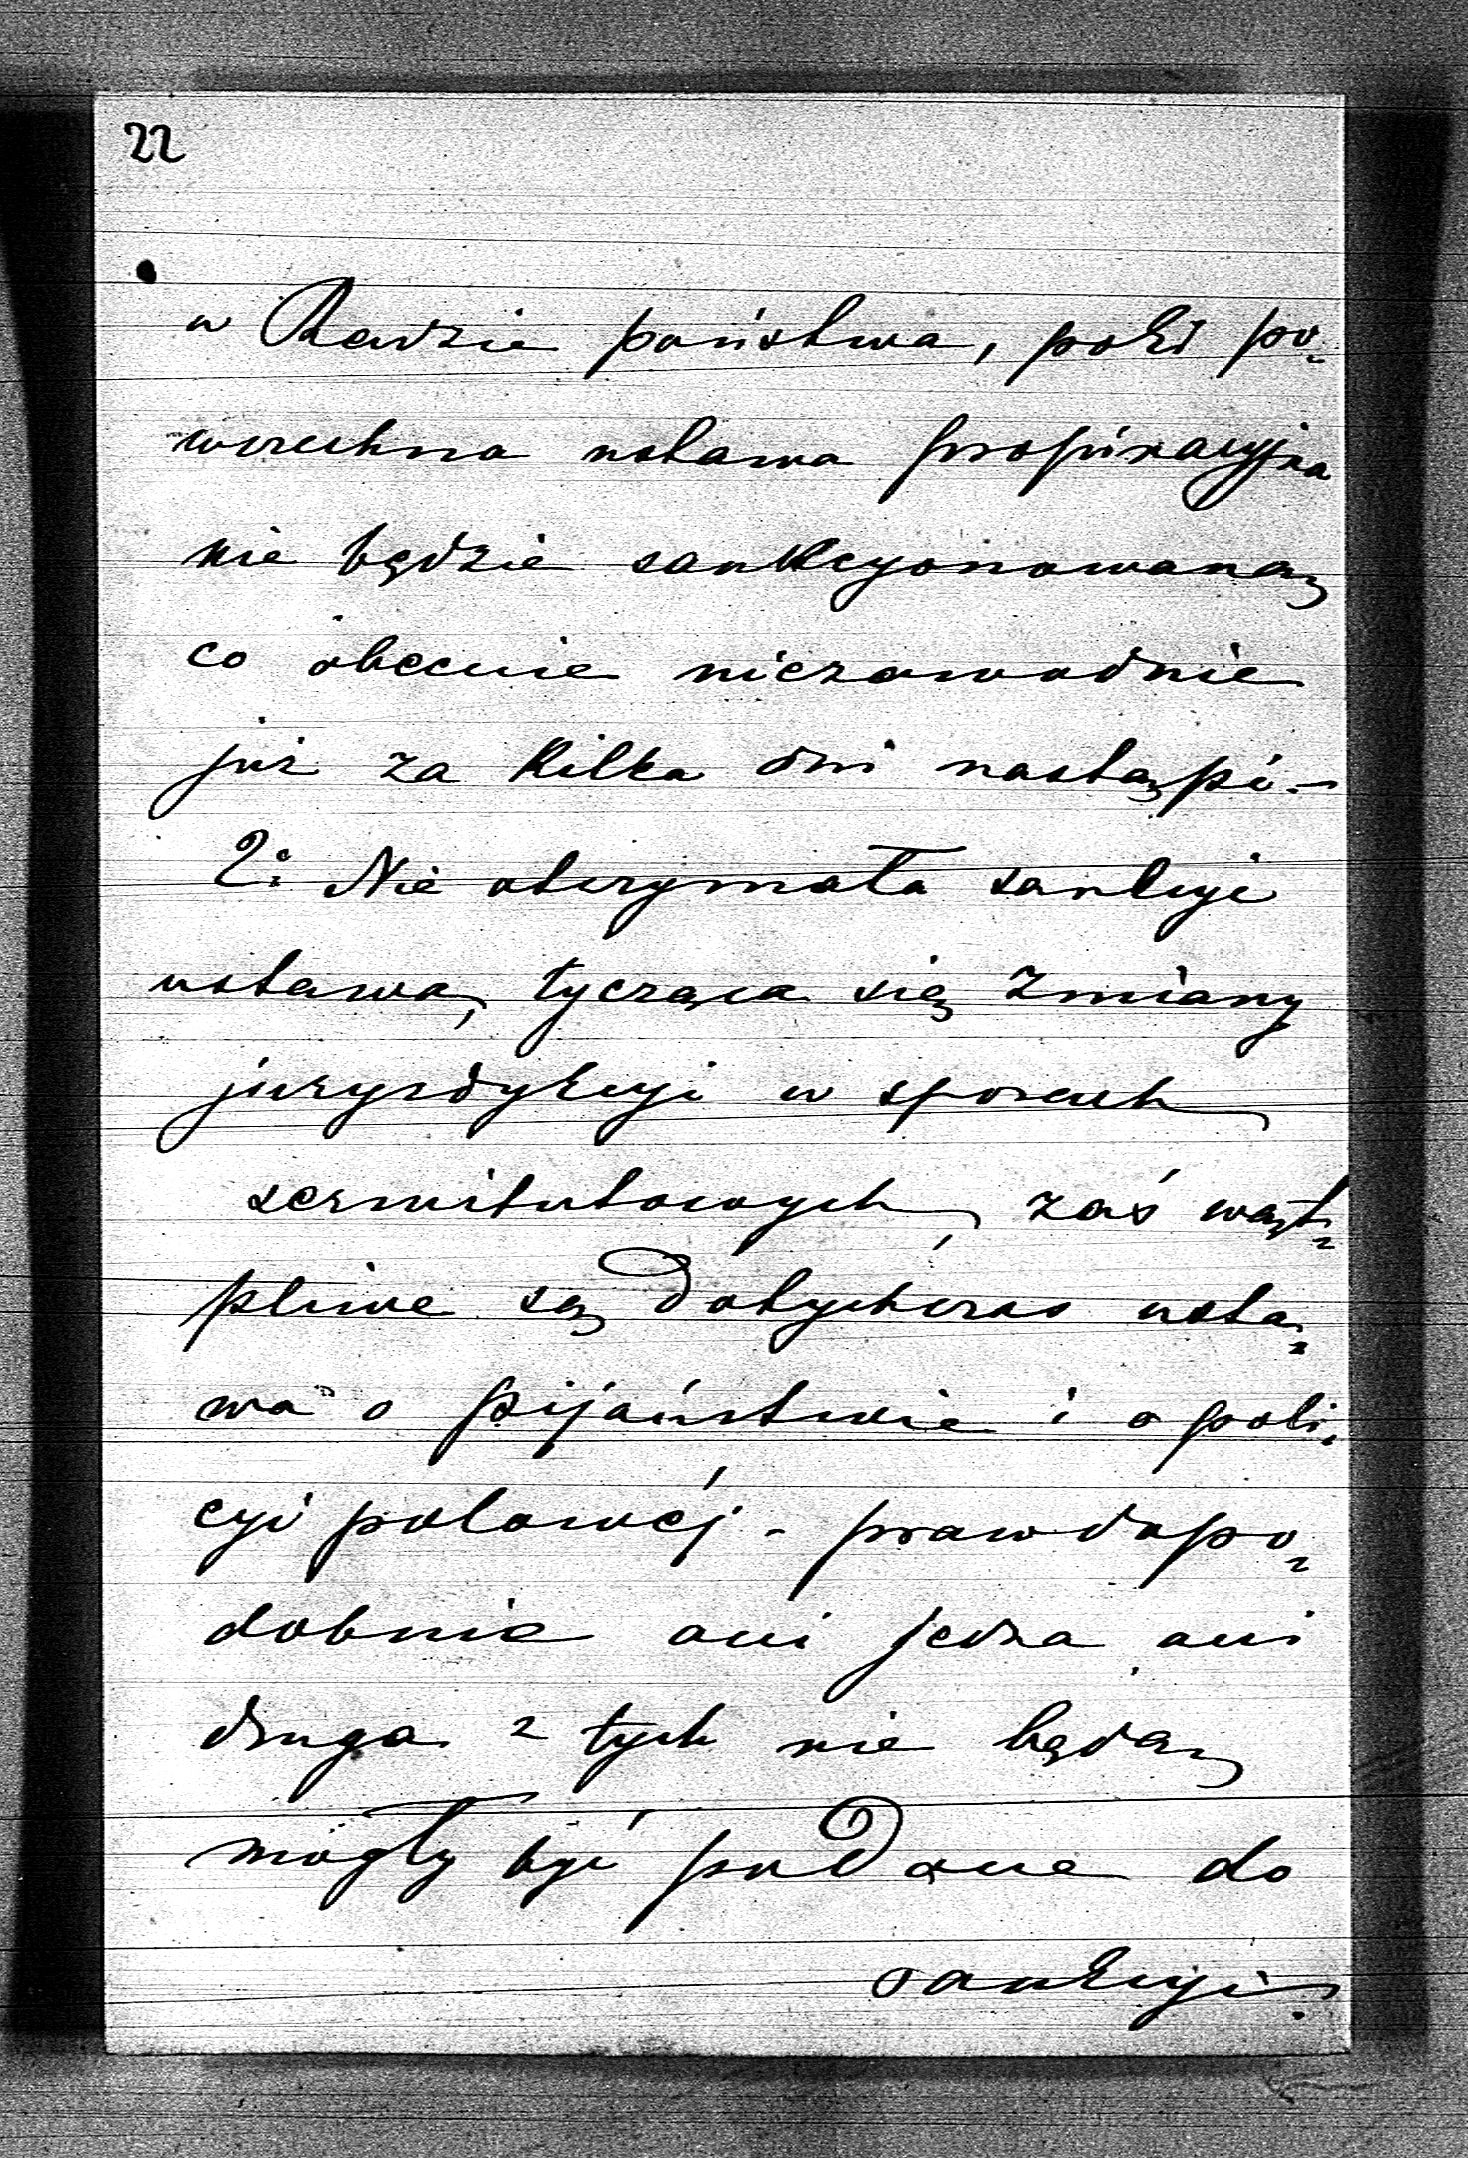 22
w Radzie państwa, pokd po-
wrechna ustawa propinacyjna
nie będzie sankcyonowaną
co obecnie niezawodnie
już za kilka dni nastąpi. -
2: Nie otrzymała sankcyi
ustawa, tycząca się zmiany
jurysdykcyi w sporach
serwitutowych, zaś wąt-
pliwe są dotychczas usta-
wa o pijaństwie i o poli-
cyi polowéj - prawdopo-
dobnie ani jedna ani
druga z tych nie będą
mogły być podane do
sankcyi.